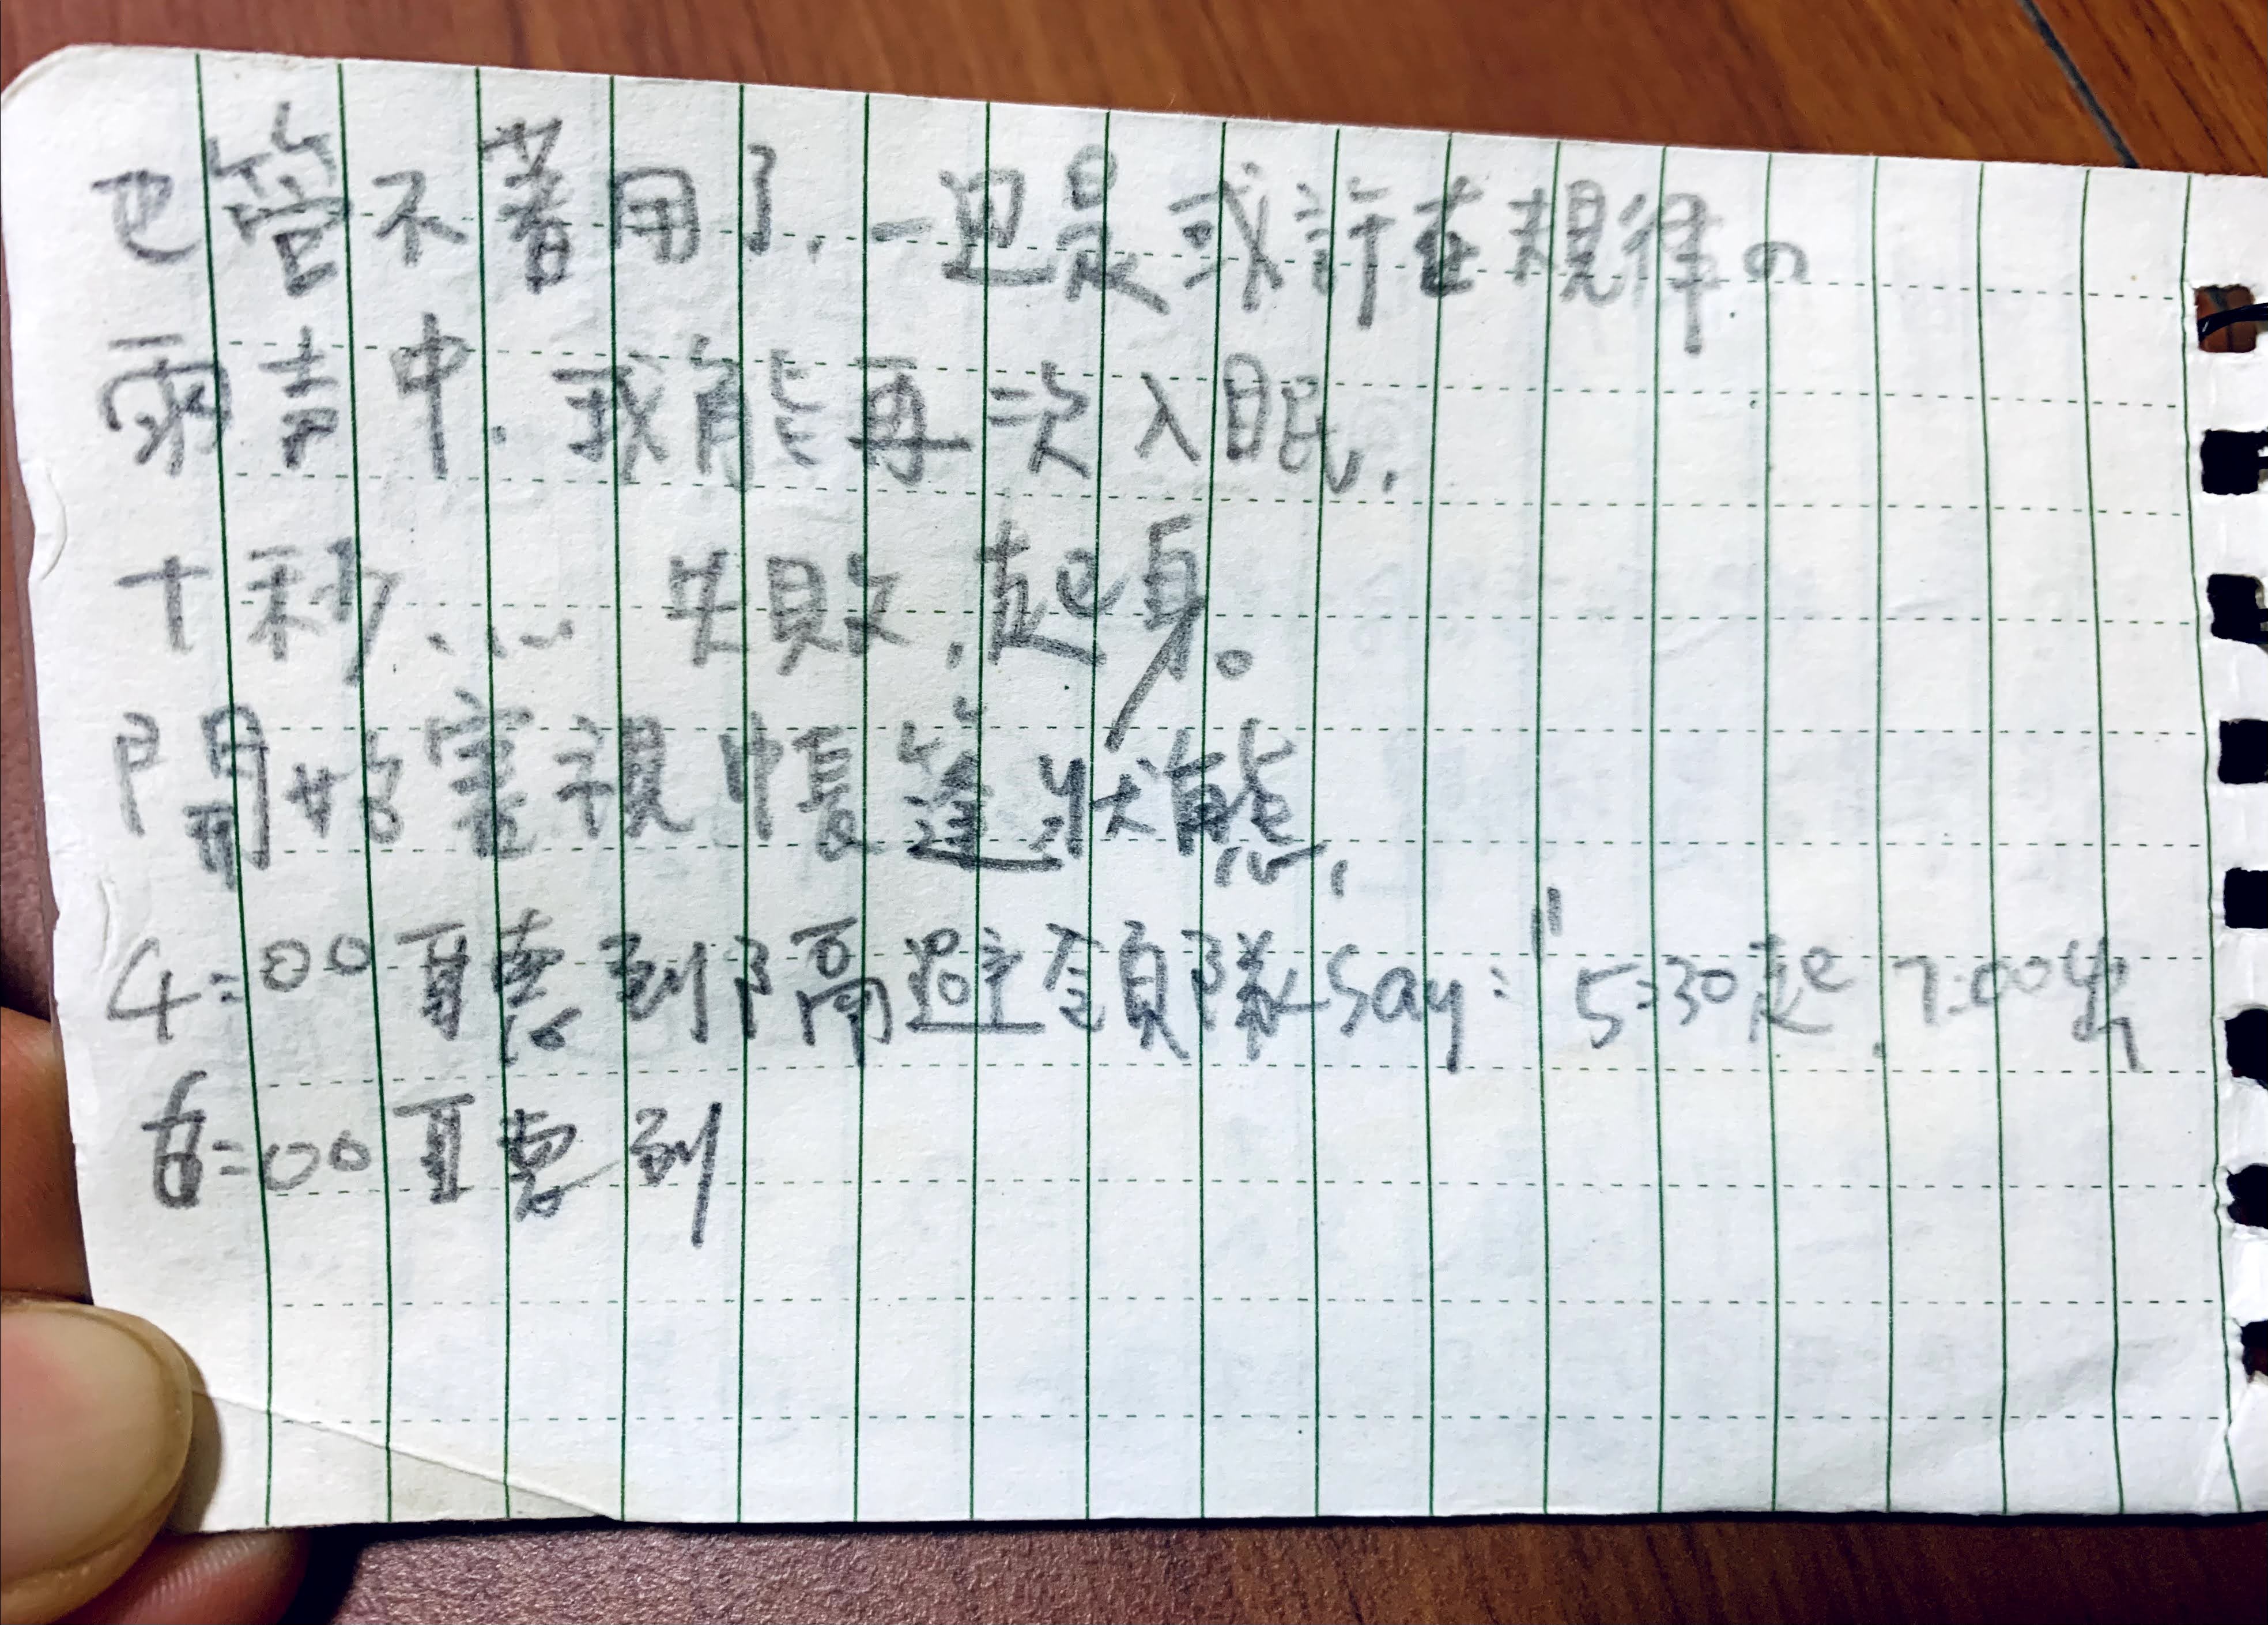 也管不著用了,一迴是或許在規律の
雨声中,或能再次入眠,
十秒…… 失敗,起身。
開始審視帳篷狀態,
4:00聽到隔避領隊Say:"5:30起,7:00出
6:00聽到